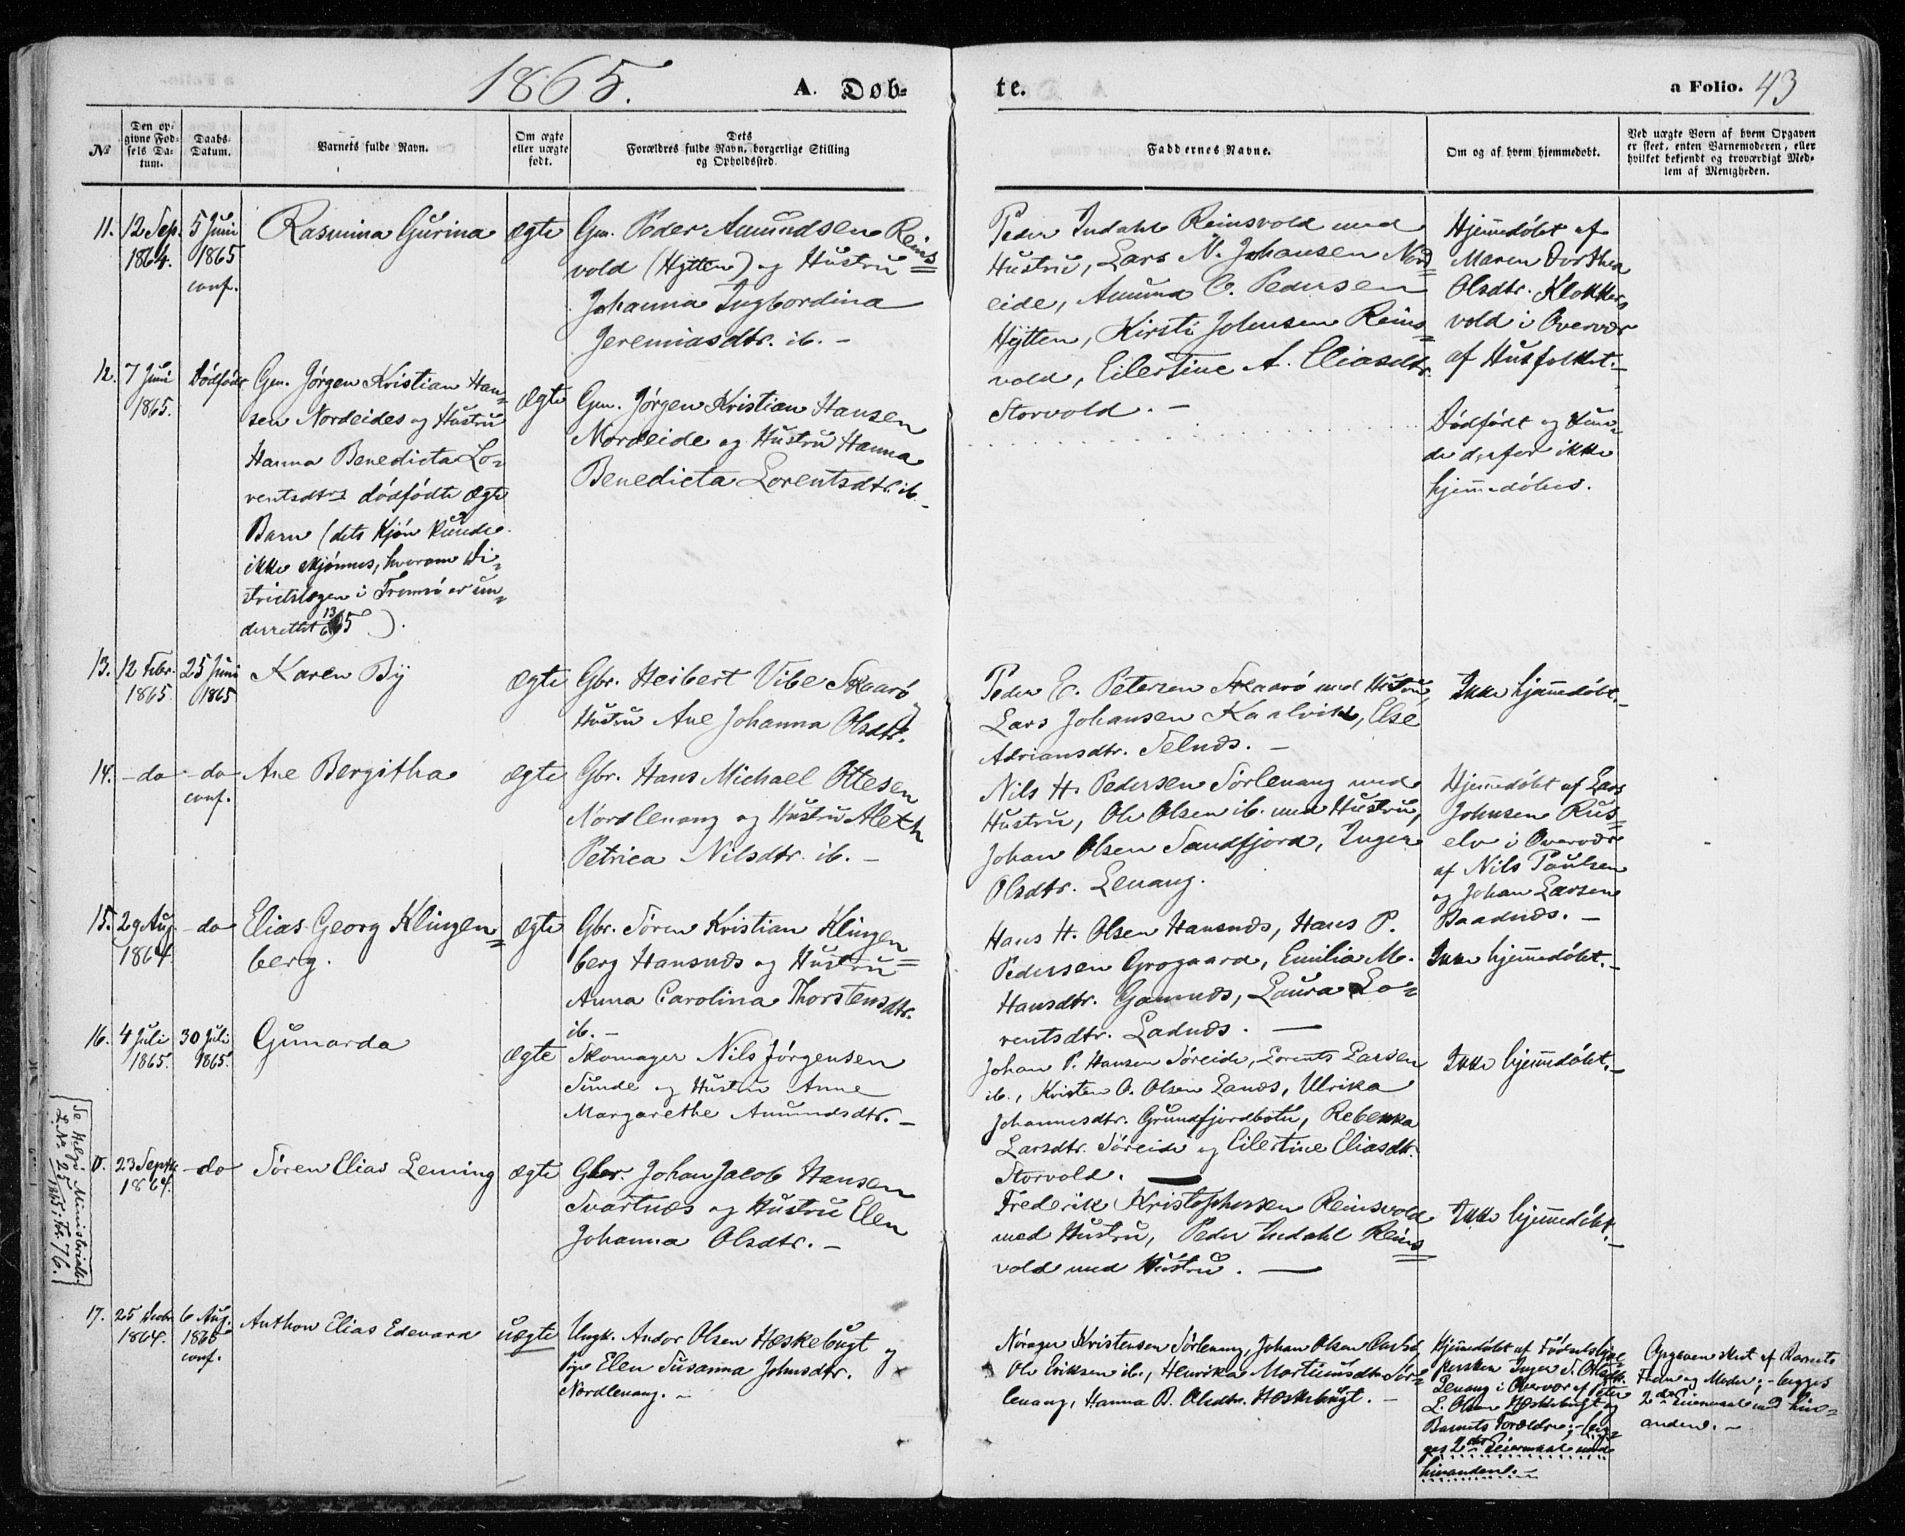 1865.
A. Døb-
te.
a Folio. 43
№
Den op-
givne Fød-
sels Da-
tum.
Daabs-
Datum.
Barnets fulde Navn.
Om ægte
eller uægte
født.
Dets
Forældres fulde Navn, borgerlige Stilling
og Opholdssted.
Faddernes Navne.
Om og af hvem hjemmedøbt.
Ved uægte Børn af hvem Opgaven
er skeet, enten Barnemoderen, eller
hvilket bekjendt og troværdigt Med-
lem af Menigheden.
11.
12 Sep.
1864.
5 Juni
1865
conf.
Rasmina Gurina
ægte
Gm. Peder Amundsen Reins=
vold (Hytten) og Hustru
Johanna Ingbordina
Jeremiasdtr. ib. -
Peder Indahl Reinsvold med
Hustru, Lars N. Johansen Nord=
eide, Amund C. Pedersen
Hytten, Kirsti Johnsen Reins=
vold, Eilertine A. Eliasdtr.
Storvold. -
Hjemmedøbt af
Maren Dorthea
Olsdtr. Klokkers
vold i Overvær
af Husfolket. -
12.
7 Juni
1865.
Dødfødt
Gm. Jørgen Kristian Han=
sen Nordeides og Hustru
Hanna Benedicta Lo-
rentsdtrs dødfødte ægte
Barn (dets Kjøn kunde
ikke skjønnes, hvorom Di-
strictslægen i Tromsø er un=
derrettet 13/6 65).
ægte
Gm. Jørgen Kristian Hansen
Nordeide og Hustru Hanna
Benedicta Lorentsdtr. ib. -
Dødfødt og kun-
de derfor ikke
hjemmedøbes.
13.
12 Febr.
1865.
25 Juni
1865
Karen By
ægte
Gbr. Heibert Vibe Skaarø
Hustru Ane Johanna Olsdtr.
Peder E. Petersen Skaarø med Hustru,
Lars Johansen Kaalvik, Else
Adriansdtr. Selnæs. -
Ikke hjemmedøbt. -
14.
- do
- do
conf.
Ane Bergitha
ægte
Gbr. Hans Michael Ottesen
Nordlenang og Hustru Aleth
Petrica Nilsdtr. ib. -
Nils H. Pedersen Sørlenang med
Hustru, Ole Olsen ib. med Hustru,
Johan Olsen Sandfjord, Inger
Olsdtr. Lenang.
Hjemmedøbt af Lars
Johnsen Rus=
elv i Overvær
af Nils Paulsen
og Johan Larsen
Baadnæs. -
15.
29 Aug.
1864
- do
Elias Georg Klingen=
berg.
ægte
Gbr. Søren Kristian Klingen=
berg Hansnæs og Hustru
Anna Carolina Thorstensdtr.
ib. -
Hans H. Olsen Hansnæs, Hans P.
Pedersen Grogaard, Emilia M.
Hansdtr. Gamnæs, Laura Lo-
rentsdtr. Ladnæs. -
Ikke hjemmedøbt. -
16.
4 Juli
1865.
30 Juli
1865.
Gunarda
ægte
Skomager Nils Jørgensen
Sunde og Hustru Anne
Margarethe Amundsdtr. -
Johan P. Hansen Søreide, Lorents Larsen
ib., Kristen O. Olsen Lanæs, Ulrika
Johannesdtr. Grundfjordbotn, Rebekka
Larsdtr. Søreide og Eilertine Eliasdtr.
Storvold. -
Ikke hjemmedøbt. -
Se Helgø Ministerialb.
L. Nº 25 1865, Fol. 76.
0.
23 Septbr.
1864.
- do
Søren Elias Leming
ægte
Gbr. Johan Jacob Hansen
Svartnæs og Hustru Elen
Johanna Olsdtr. -
Frederik Kristophersen Reinsvold
med Hustru, Peder Indahl Reins=
vold med Hustru. -
Ikke hjemmedøbt. -
17.
25 Decbr.
1864.
6 Aug.
1865
conf.
Anthon Elias Edevard
uægte
Ungk. Andor Olsen Hæskebugt og
Pige Elen Susanna Johnsdtr.
Nordlenang. -
Nøræger Kristensen Sørlenang, Johan Olsen
Ole Eriksen ib., Henrika Martinusdtr. Sør-
lenang, Hanna O. Olsdtr. Hæskebugt. -
Hjemmedøbt af Fødselshjæl-
persken Inger S. Olsdtr.
Lenang i Overvær af Peter
L. Olsen Hæskebugt og
Barnets Forældre; - beg-
ges 2det Leiermaal med
hinanden. -
Opgaven skeet af Barnets
Fader og Moder; - begges
2det Leiermaal med hin-
anden. -